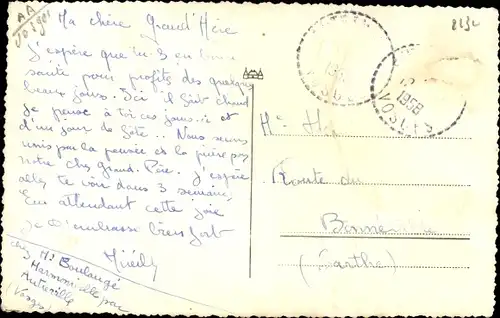 Ma chère Grand'Mère
J'espère que tu es en bonne
santé pour profiter des quelques
beaux jours. Ici il fait chaud
je pense à toi ces jours-ci et
d'un jour de fête.. Nous serons
unis par la pensée et la prière pour
notre cher Grand. Père. J'espère
aller te voir dans 3 semaines,
En attendant cette joie
Je t'embrasse bien fort
chez Me Boulangé
Harmonville par
Autreville
(Vosges)
1958
VOSGES
Route du
(Sarthe)